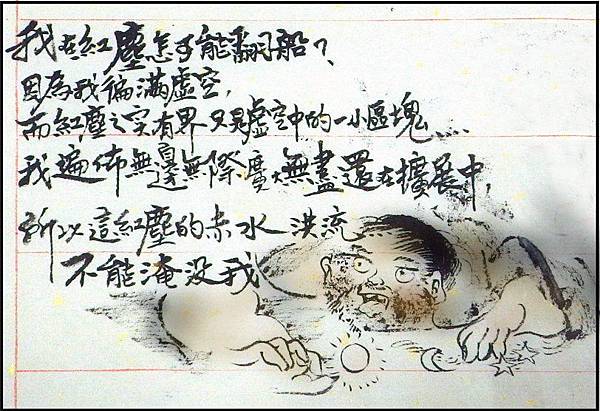 我在紅塵怎可能翻船？
因為我徧滿虛空，
而紅塵之宇有界只是虛空中的一小區塊.....
我遍佈無邊無際廣大無盡還在擴展中，
所以這紅塵的赤水洪流
不能淹没我